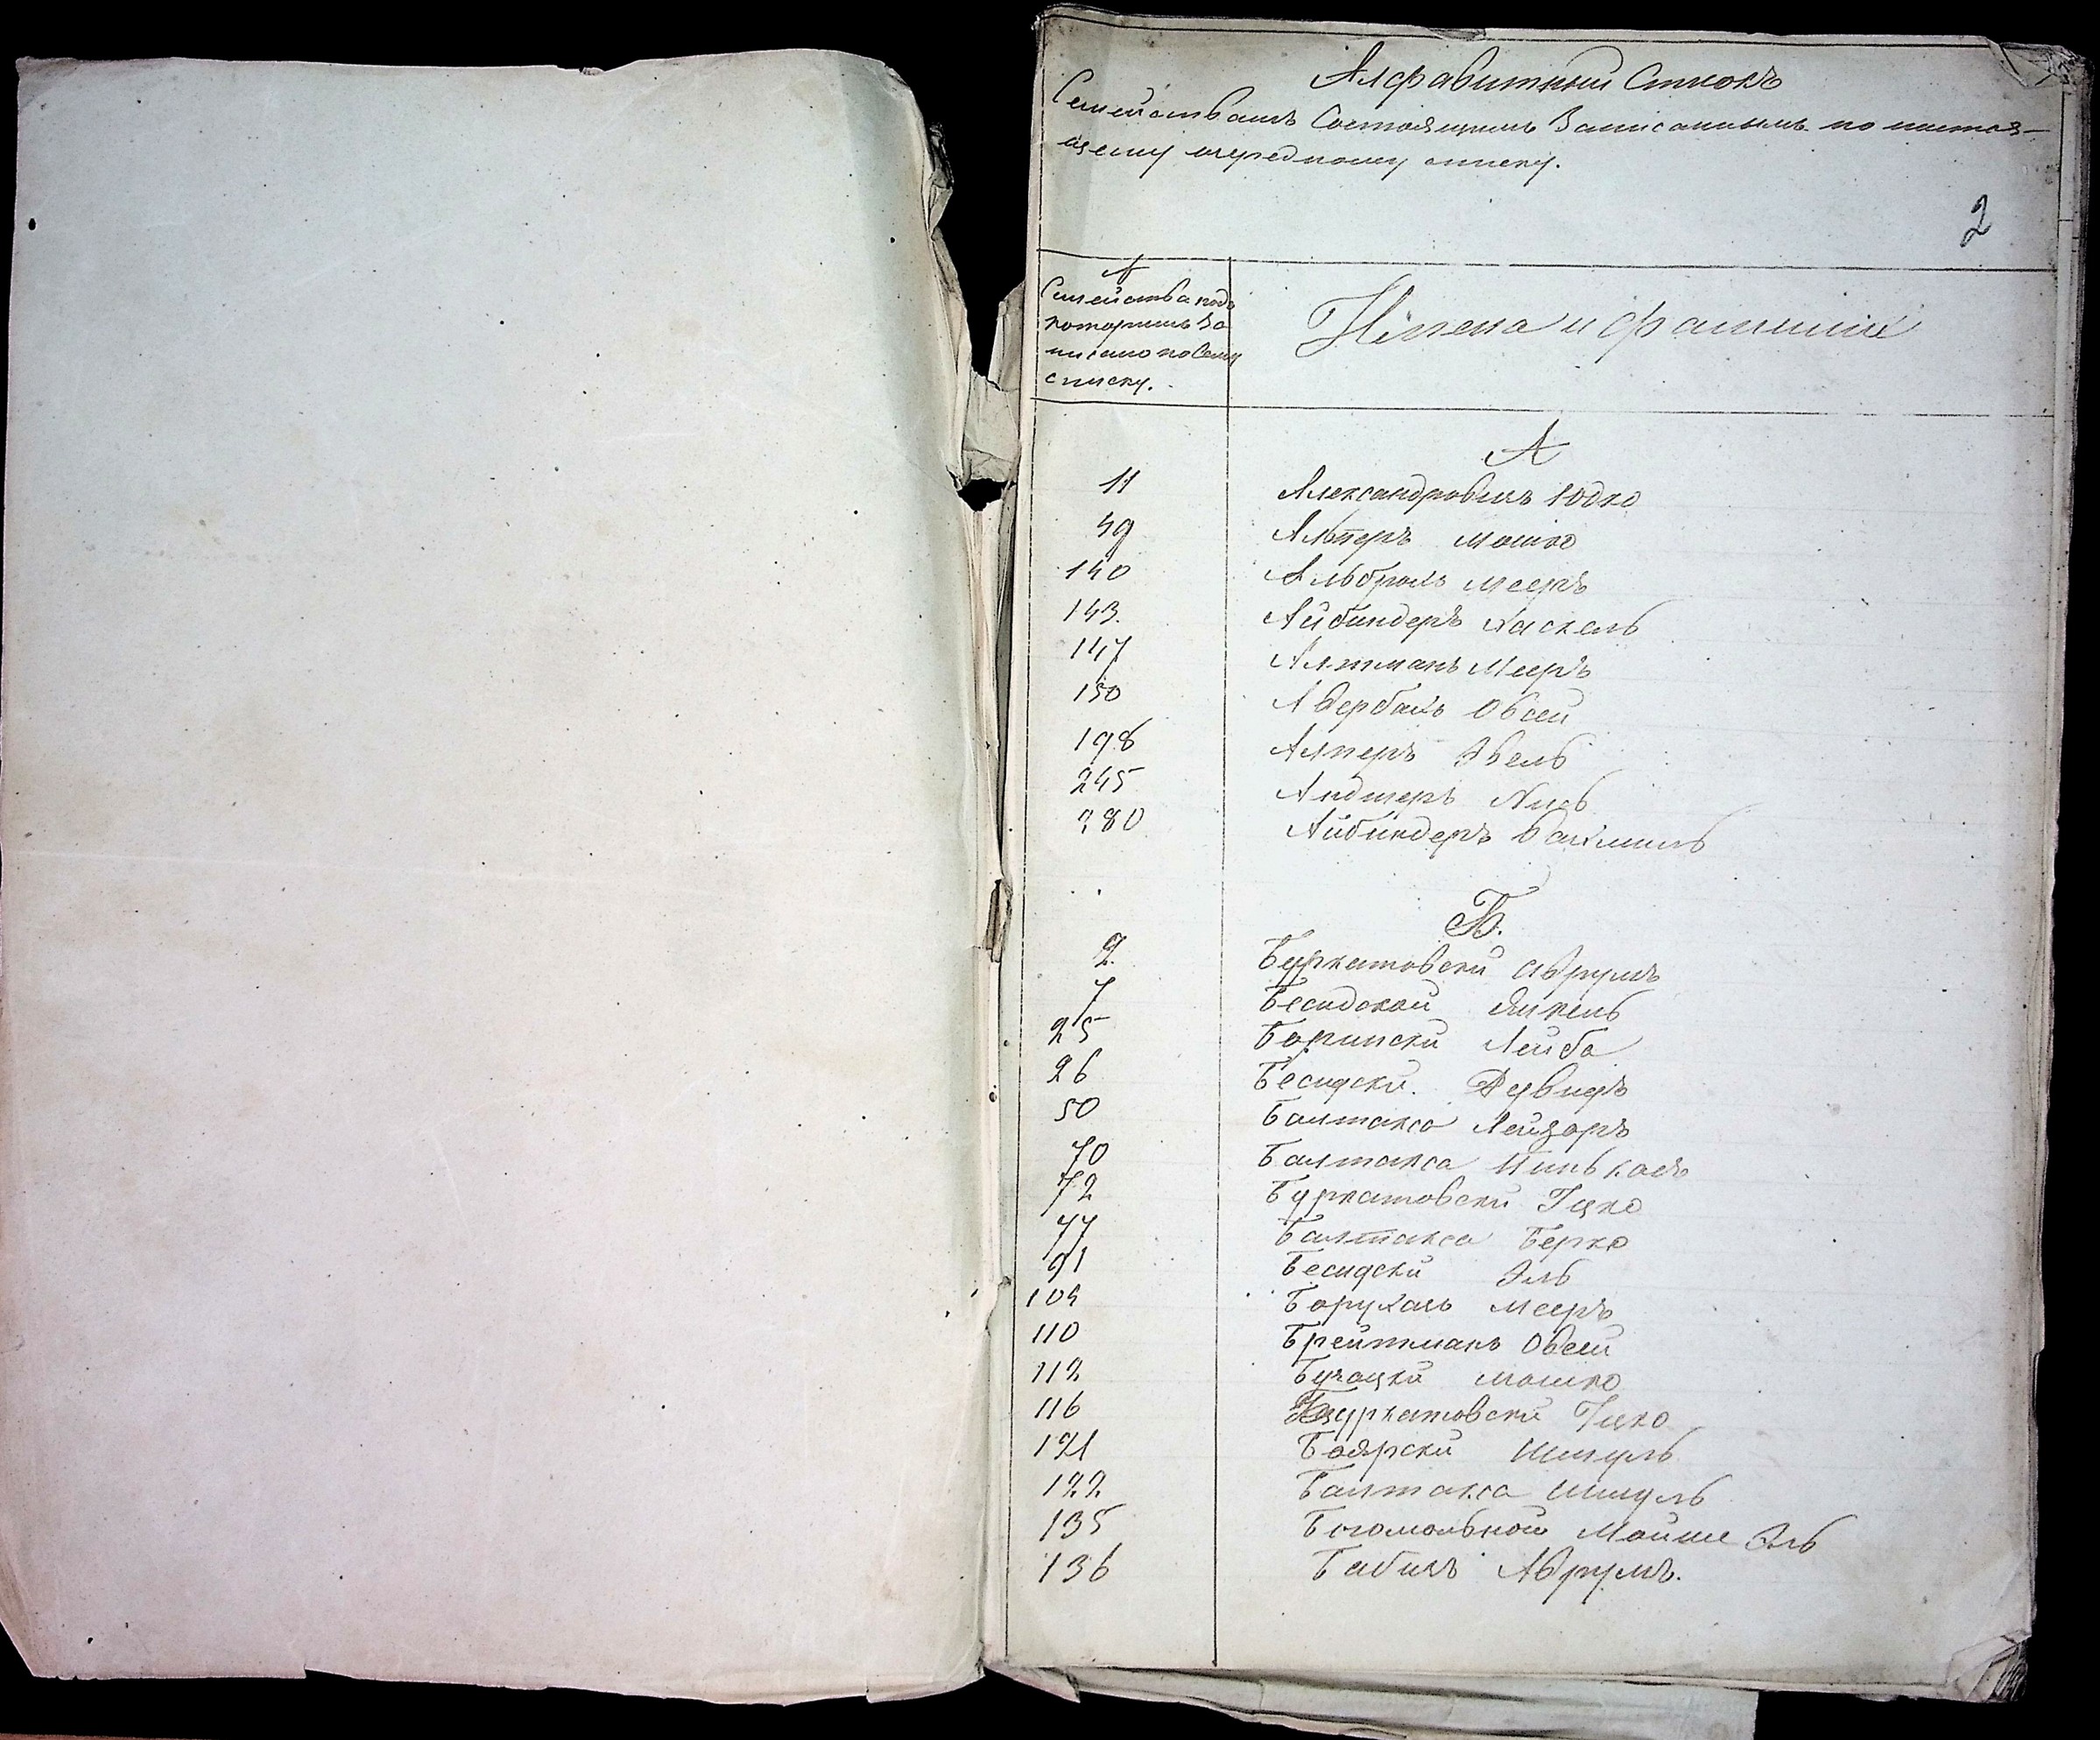 Алфавитный Списокъ
Семействамъ Состоящимъ Записаннымъ по настоя-
щему очередному списку.
2
№
Семейства подъ
которымъ За
писано по Сему
списку.
Имена и фамилии
А
11 Александровичъ Юдко
49 Альперъ Мошко
140 Мееръ
143. Айбиндеръ Хаскель
147 Алтманъ Мееръ
150 Авербахъ Овсей
198 Алперъ Эвель
245
280 Айбиндеръ
Б.
2. Буркатовски Аврумъ
7 Бесидской Янкель
25 Лейба
26 Бесидски. Дувидъ
50 Балтакса Лейзоръ
70 Балтакса Пинькасъ
72 Буркатовски Ицко
77 Балтакса Берко
91 Бесидски Эль
104 Борухъ Мееръ
110 Брейтманъ Овсей
112 Бучацки Мошко
116 Буркатовски Ицко
121 Боярски Шмуль
122 Балтакса Шмуль
135 Богомольной Мойше Эль
136 Бабичъ Аврумъ.